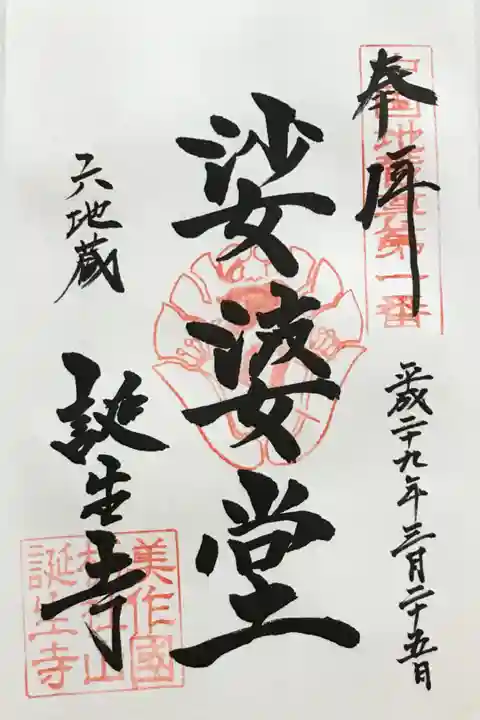 奉拝
中国地蔵尊第一番
平成二十九年三月二十五日
娑婆堂
六地蔵
誕生寺
美作國
誕生寺